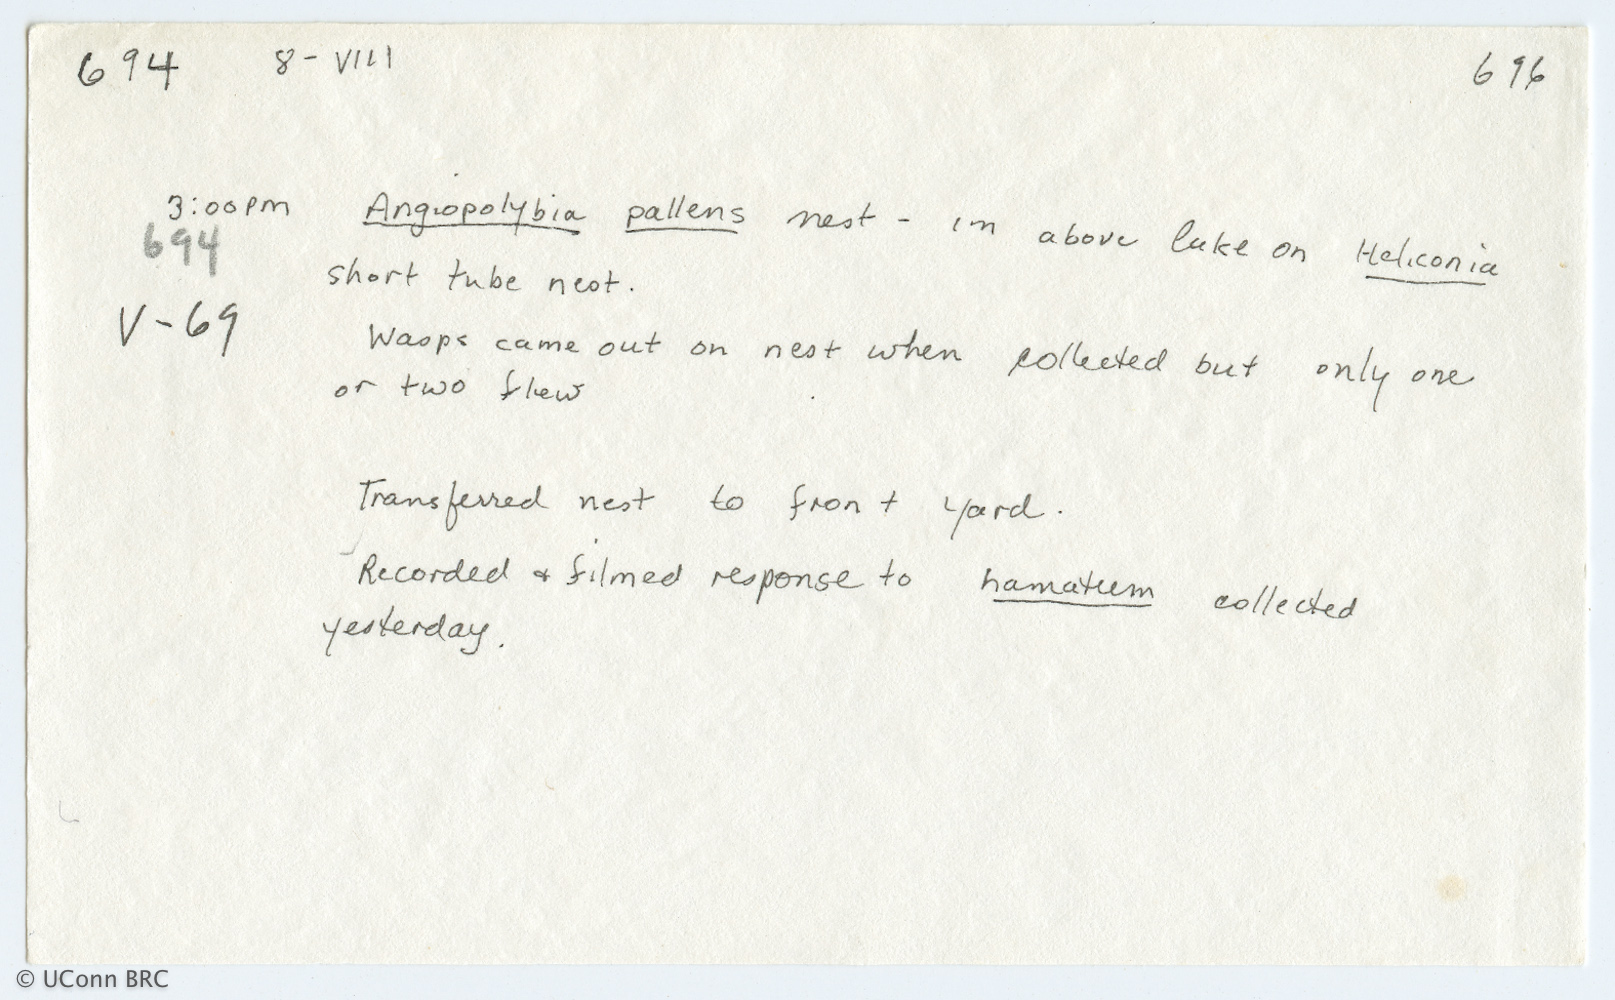 694 8-VIII 696
3:00pm Angiopolybia pallens nest - 1m above lake on Heliconia
694
short tube nest.
V-69
Wasps came out on nest when collected but only one
or two flew
Transferred nest to front yard.
Recorded & filmed response to hamatum collected
yesterday.
© UConn BRC